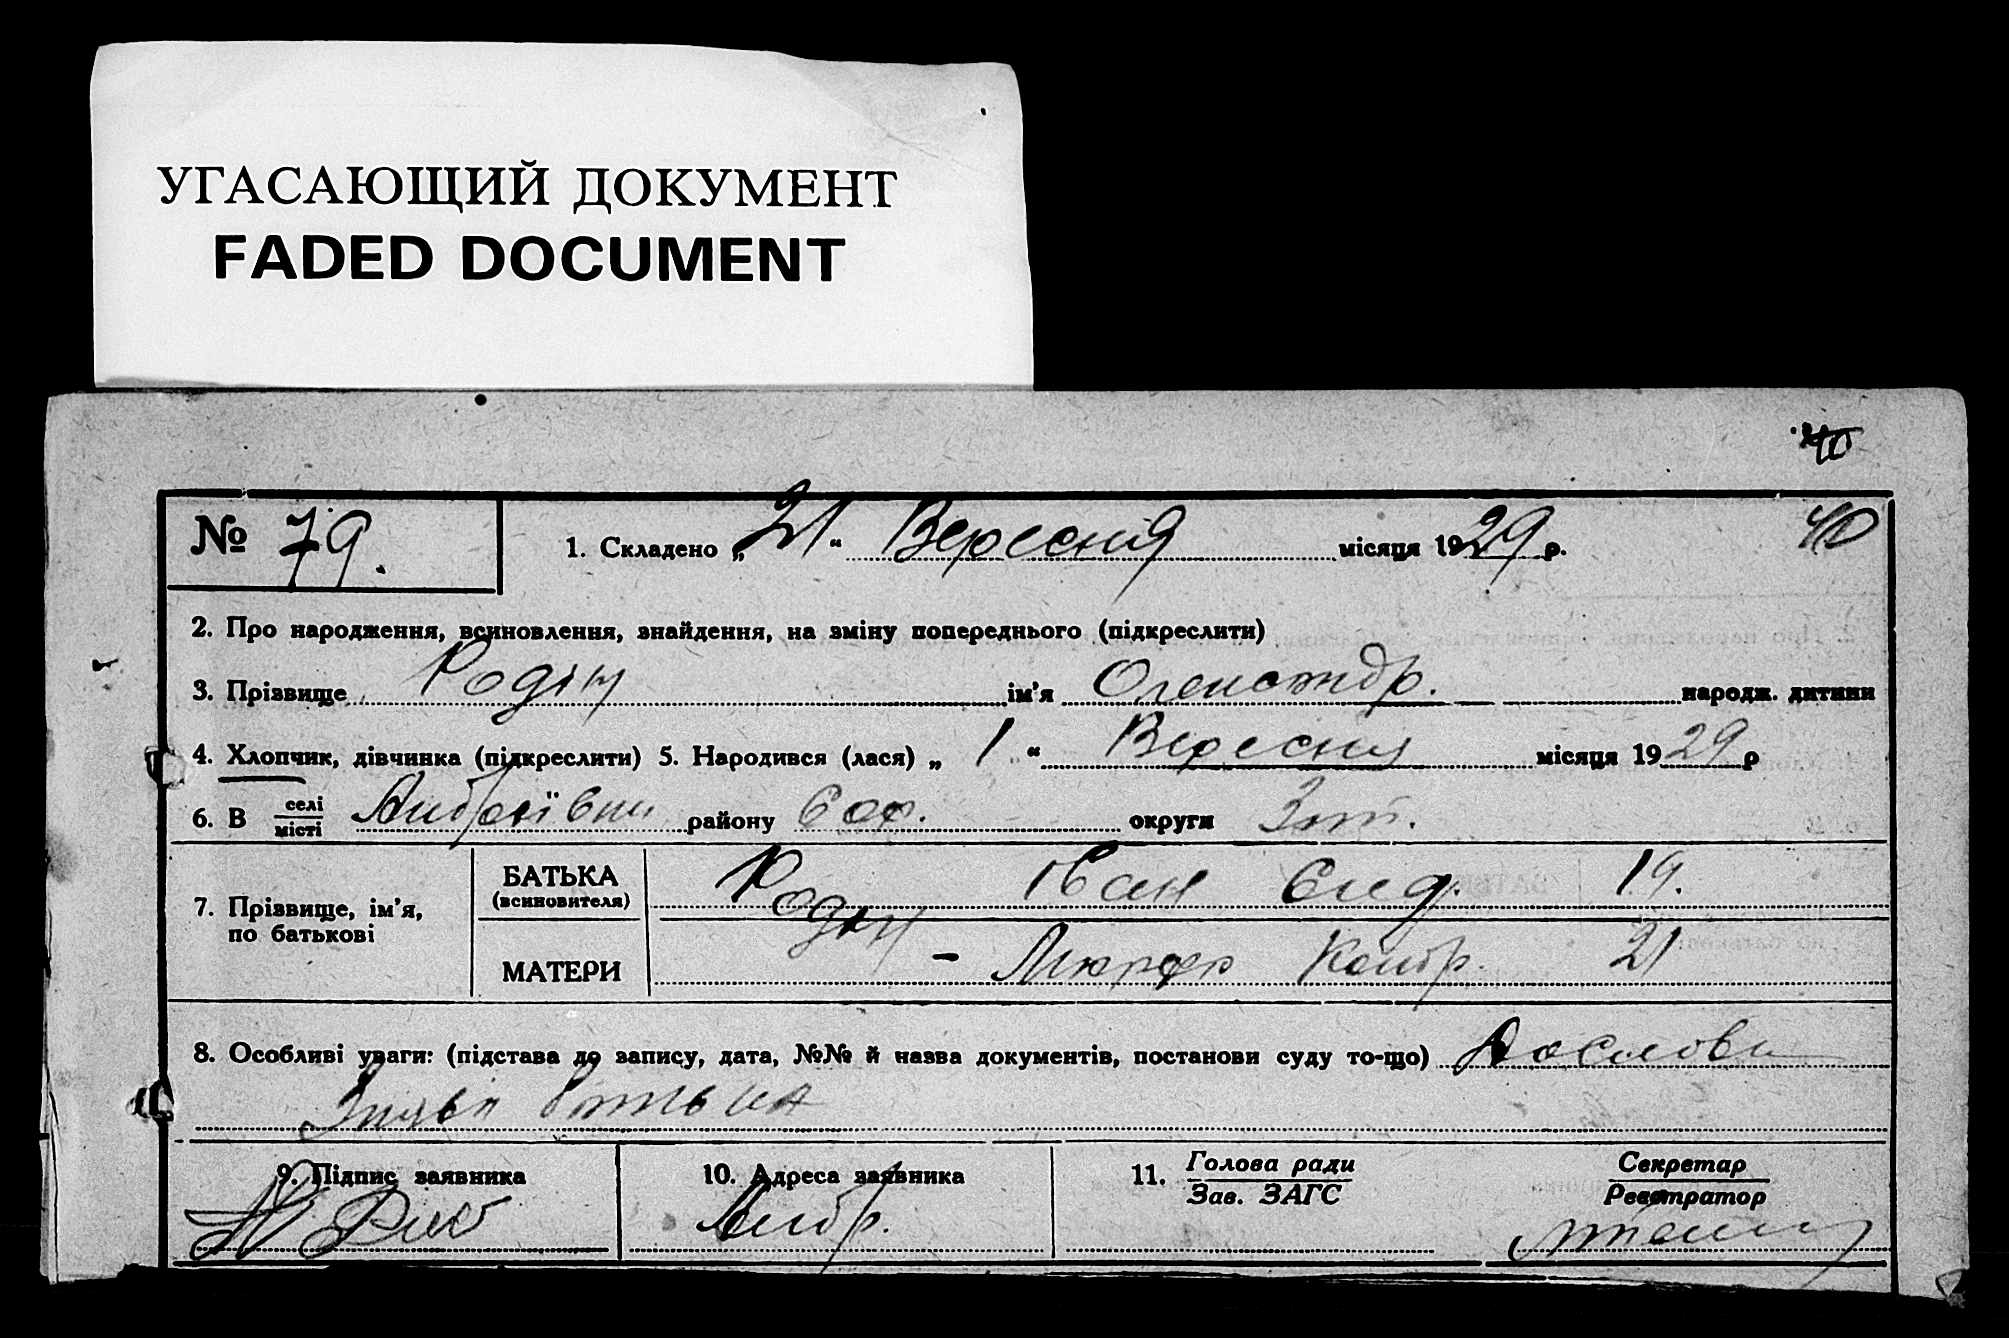 УГАСАЮЩИЙ ДОКУМЕНТ
FADED DOCUMENT
40
№ 79.
1. Складено „21“ Вересня місяця 1929 р.
40
2. Про народження, всиновлення, знайдення, на зміну попереднього (підкреслити)
3. Прізвище Родін ім'я Олександр. народж. дитини
4. Хлопчик, дівчинка (підкреслити) 5. Народився (лася) „1“ Вересня місяця 1929 р
6. В селі/місті Андріївки району округи
7. Прізвище, ім'я, по батькові
БАТЬКА (всиновителя) Родін Іван 19.
МАТЕРИ — Кондр. 21
8. Особливі уваги: (підстава до запису, дата, №№ й назва документів, постанови суду то-що)
батька
9. Підпис заявника
10. Адреса заявника
Андр.
11. Голова ради
Зав. ЗАГС
Секретар
Реєстратор